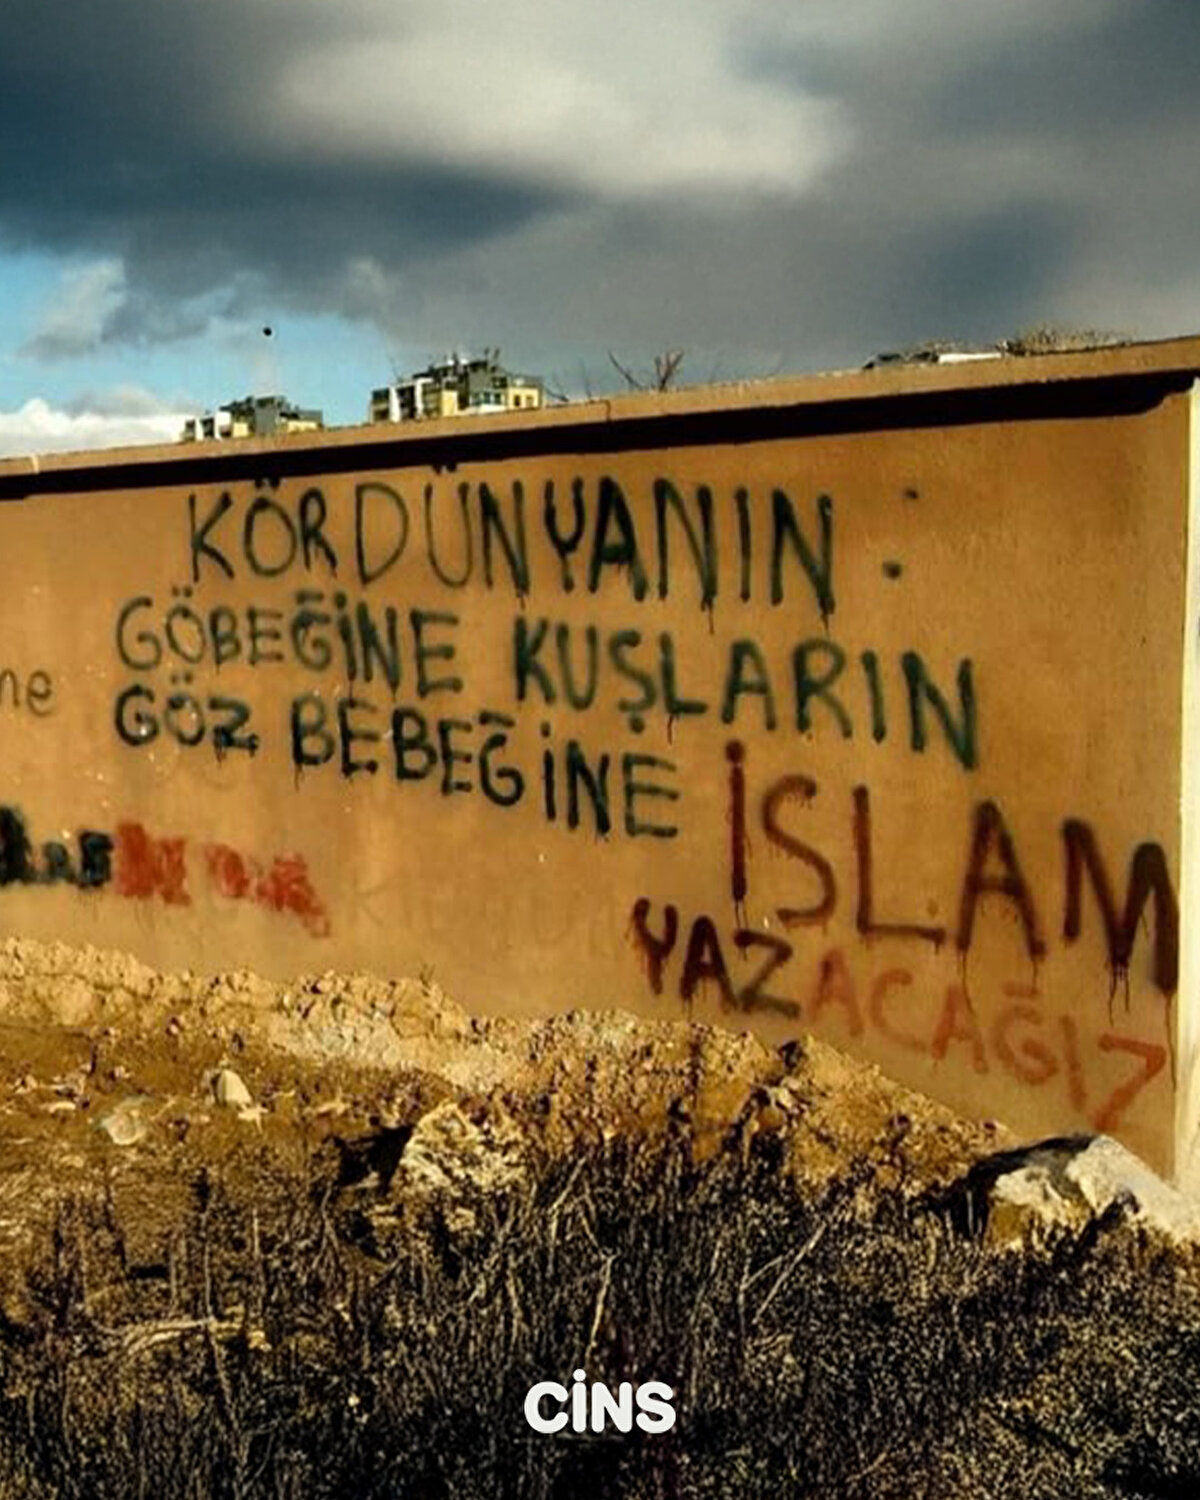 KÖR DÜNYANIN :
GÖBEĞİNE KUŞLARIN
GÖZ BEBEĞİNE İSLAM
YAZACAĞIZ
ne
CİNS